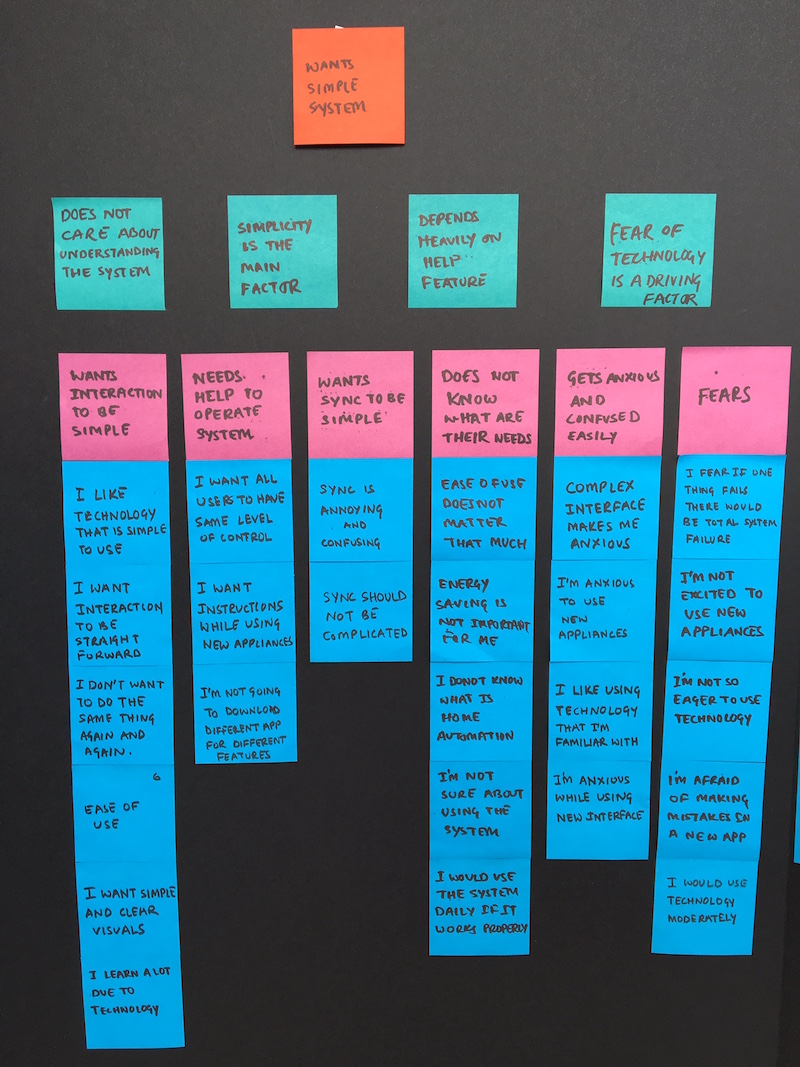 WANTS
SIMPLE
SYSTEM
DOES NOT
CARE ABOUT
UNDERSTANDING
THE SYSTEM
SIMPLICITY
IS THE
MAIN
FACTOR
DEPENDS
HEAVILY ON
HELP
FEATURE
FEAR OF
TECHNOLOGY
IS A DRIVING
FACTOR
WANTS
INTERACTION
TO BE
SIMPLE
I LIKE
TECHNOLOGY
THAT IS SIMPLE
TO USE
I WANT
INTERACTION
TO BE
STRAIGHT
FORWARD
I DON'T WANT
TO DO THE
SAME THING
AGAIN AND
AGAIN.
6
EASE OF
USE
I WANT SIMPLE
AND CLEAR
VISUALS
I LEARN A LOT
DUE TO
TECHNOLOGY
NEEDS
HELP TO
OPERATE
SYSTEM
I WANT ALL
USERS TO HAVE
SAME LEVEL
OF CONTROL
I WANT
INSTRUCTIONS
WHILE USING
NEW APPLIANCES
I'M NOT GOING
TO DOWNLOAD
DIFFERENT APP
FOR DIFFERENT
FEATURES
WANTS
SYNC TO BE
SIMPLE
SYNC IS
ANNOYING
AND
CONFUSING
SYNC SHOULD
NOT BE
COMPLICATED
DOES NOT
KNOW
WHAT ARE
THEIR NEEDS
EASE OF USE
DOES NOT
MATTER
THAT MUCH
ENERGY
SAVING IS
NOT IMPORTANT
FOR ME
I DONOT KNOW
WHAT IS
HOME
AUTOMATION
I'M NOT
SURE ABOUT
USING THE
SYSTEM
I WOULD USE
THE SYSTEM
DAILY IF IT
WORKS PROPERLY
GETS ANXIOUS
AND
CONFUSED
EASILY
COMPLEX
INTERFACE
MAKES ME
ANXIOUS
I'M ANXIOUS
TO USE
NEW
APPLIANCES
I LIKE USING
TECHNOLOGY
THAT I'M
FAMILIAR WITH
I'M ANXIOUS
WHILE USING
NEW INTERFACE
FEARS
I FEAR IF ONE
THING FAILS
THERE WOULD
BE TOTAL SYSTEM
FAILURE
I'M NOT
EXCITED TO
USE NEW
APPLIANCES
I'M NOT SO
EAGER TO USE
TECHNOLOGY
I'M AFRAID
OF MAKING
MISTAKES IN
A NEW APP
I WOULD USE
TECHNOLOGY
MODERATELY